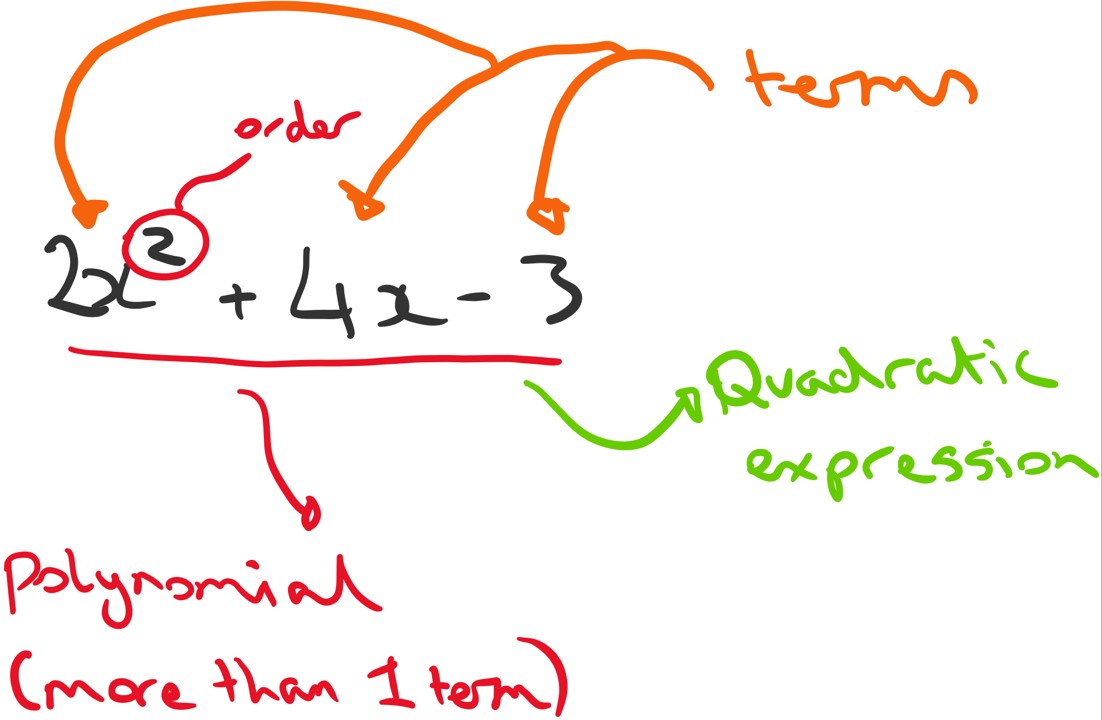 terms
order
2x² + 4x - 3
Quadratic
expression
Polynomial
(more than 1 term)